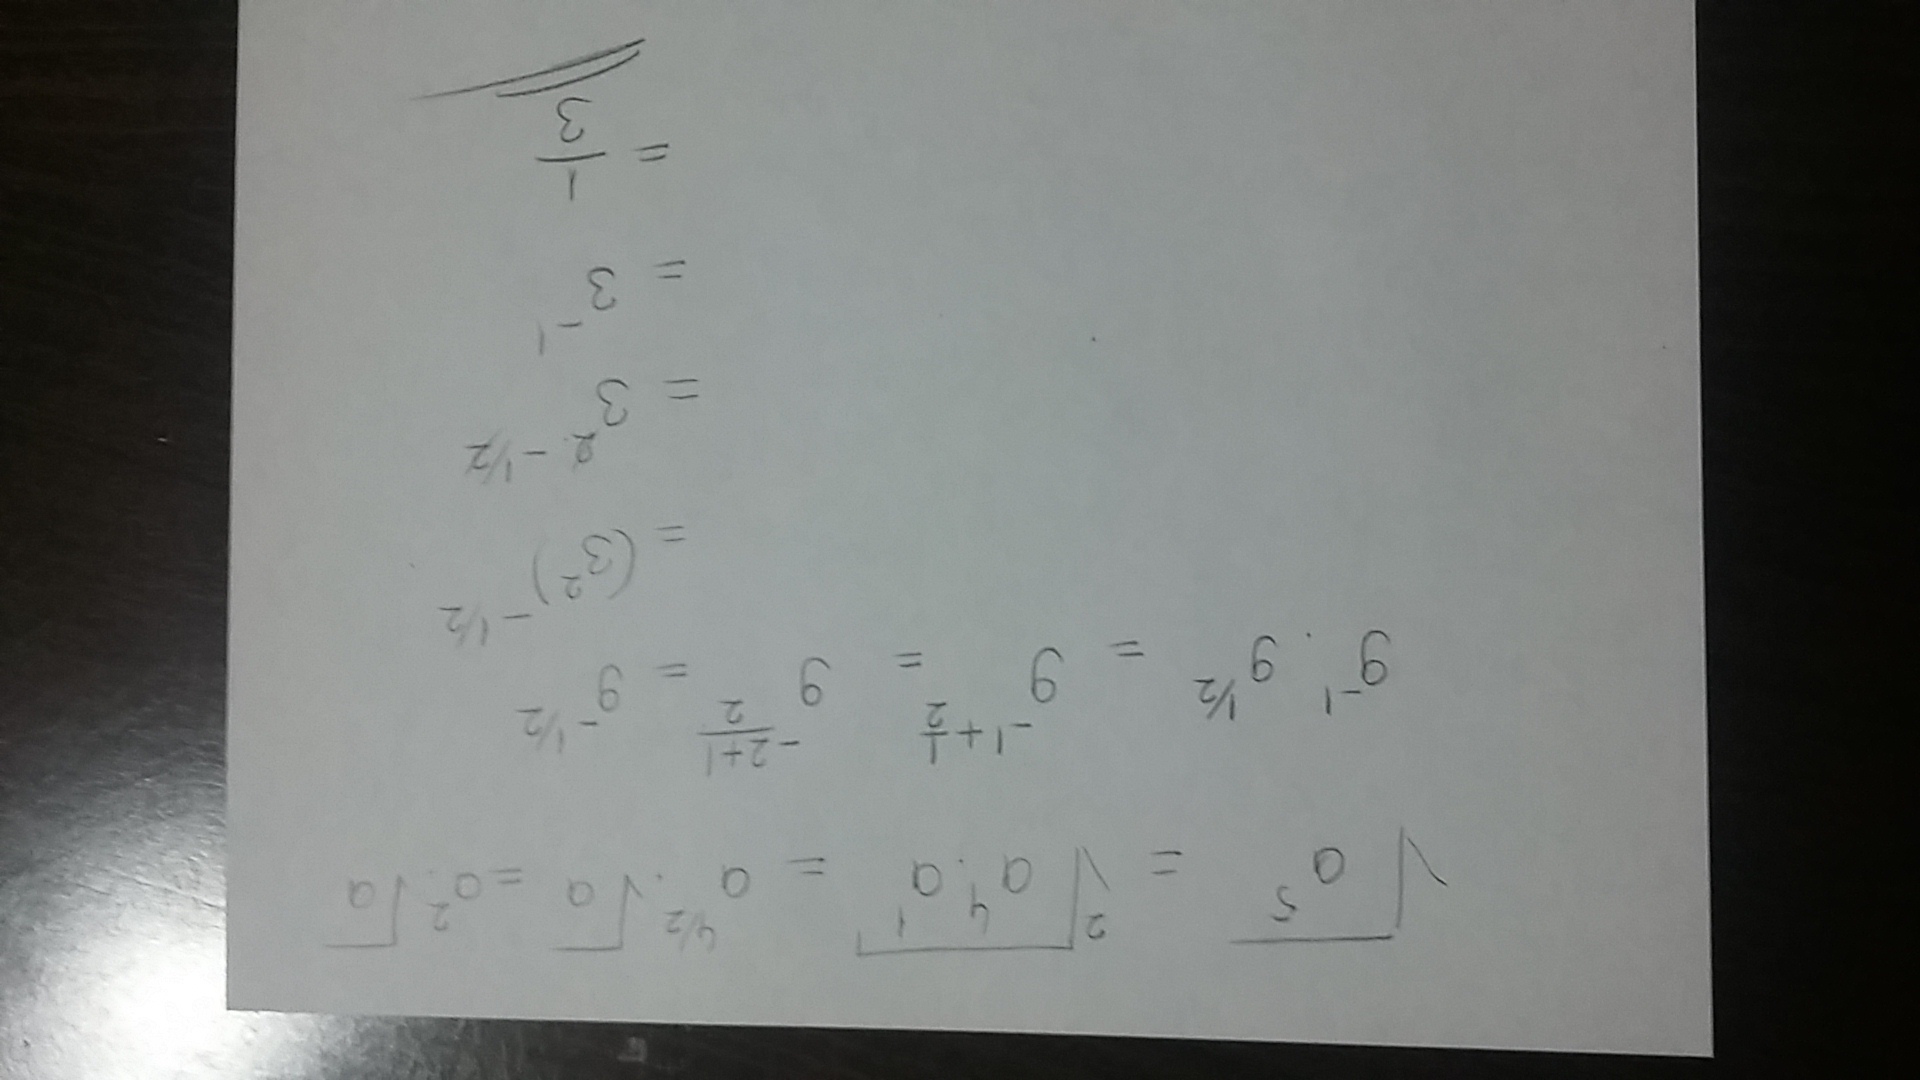 √a⁵ = ²√a⁴·a¹ = a^4/2·√a = a²·√a
9⁻¹ · 9^1/2 = 9^-1+1/2 = 9^-2+1/2 = 9^-1/2
= (3²)^-1/2
= 3^2·-1/2
= 3⁻¹
= 1/3